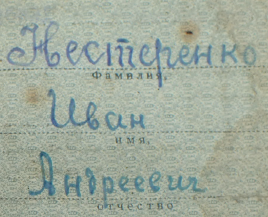 Нестеренко
фамилия,
Иван
имя,
Андреевич
отчество